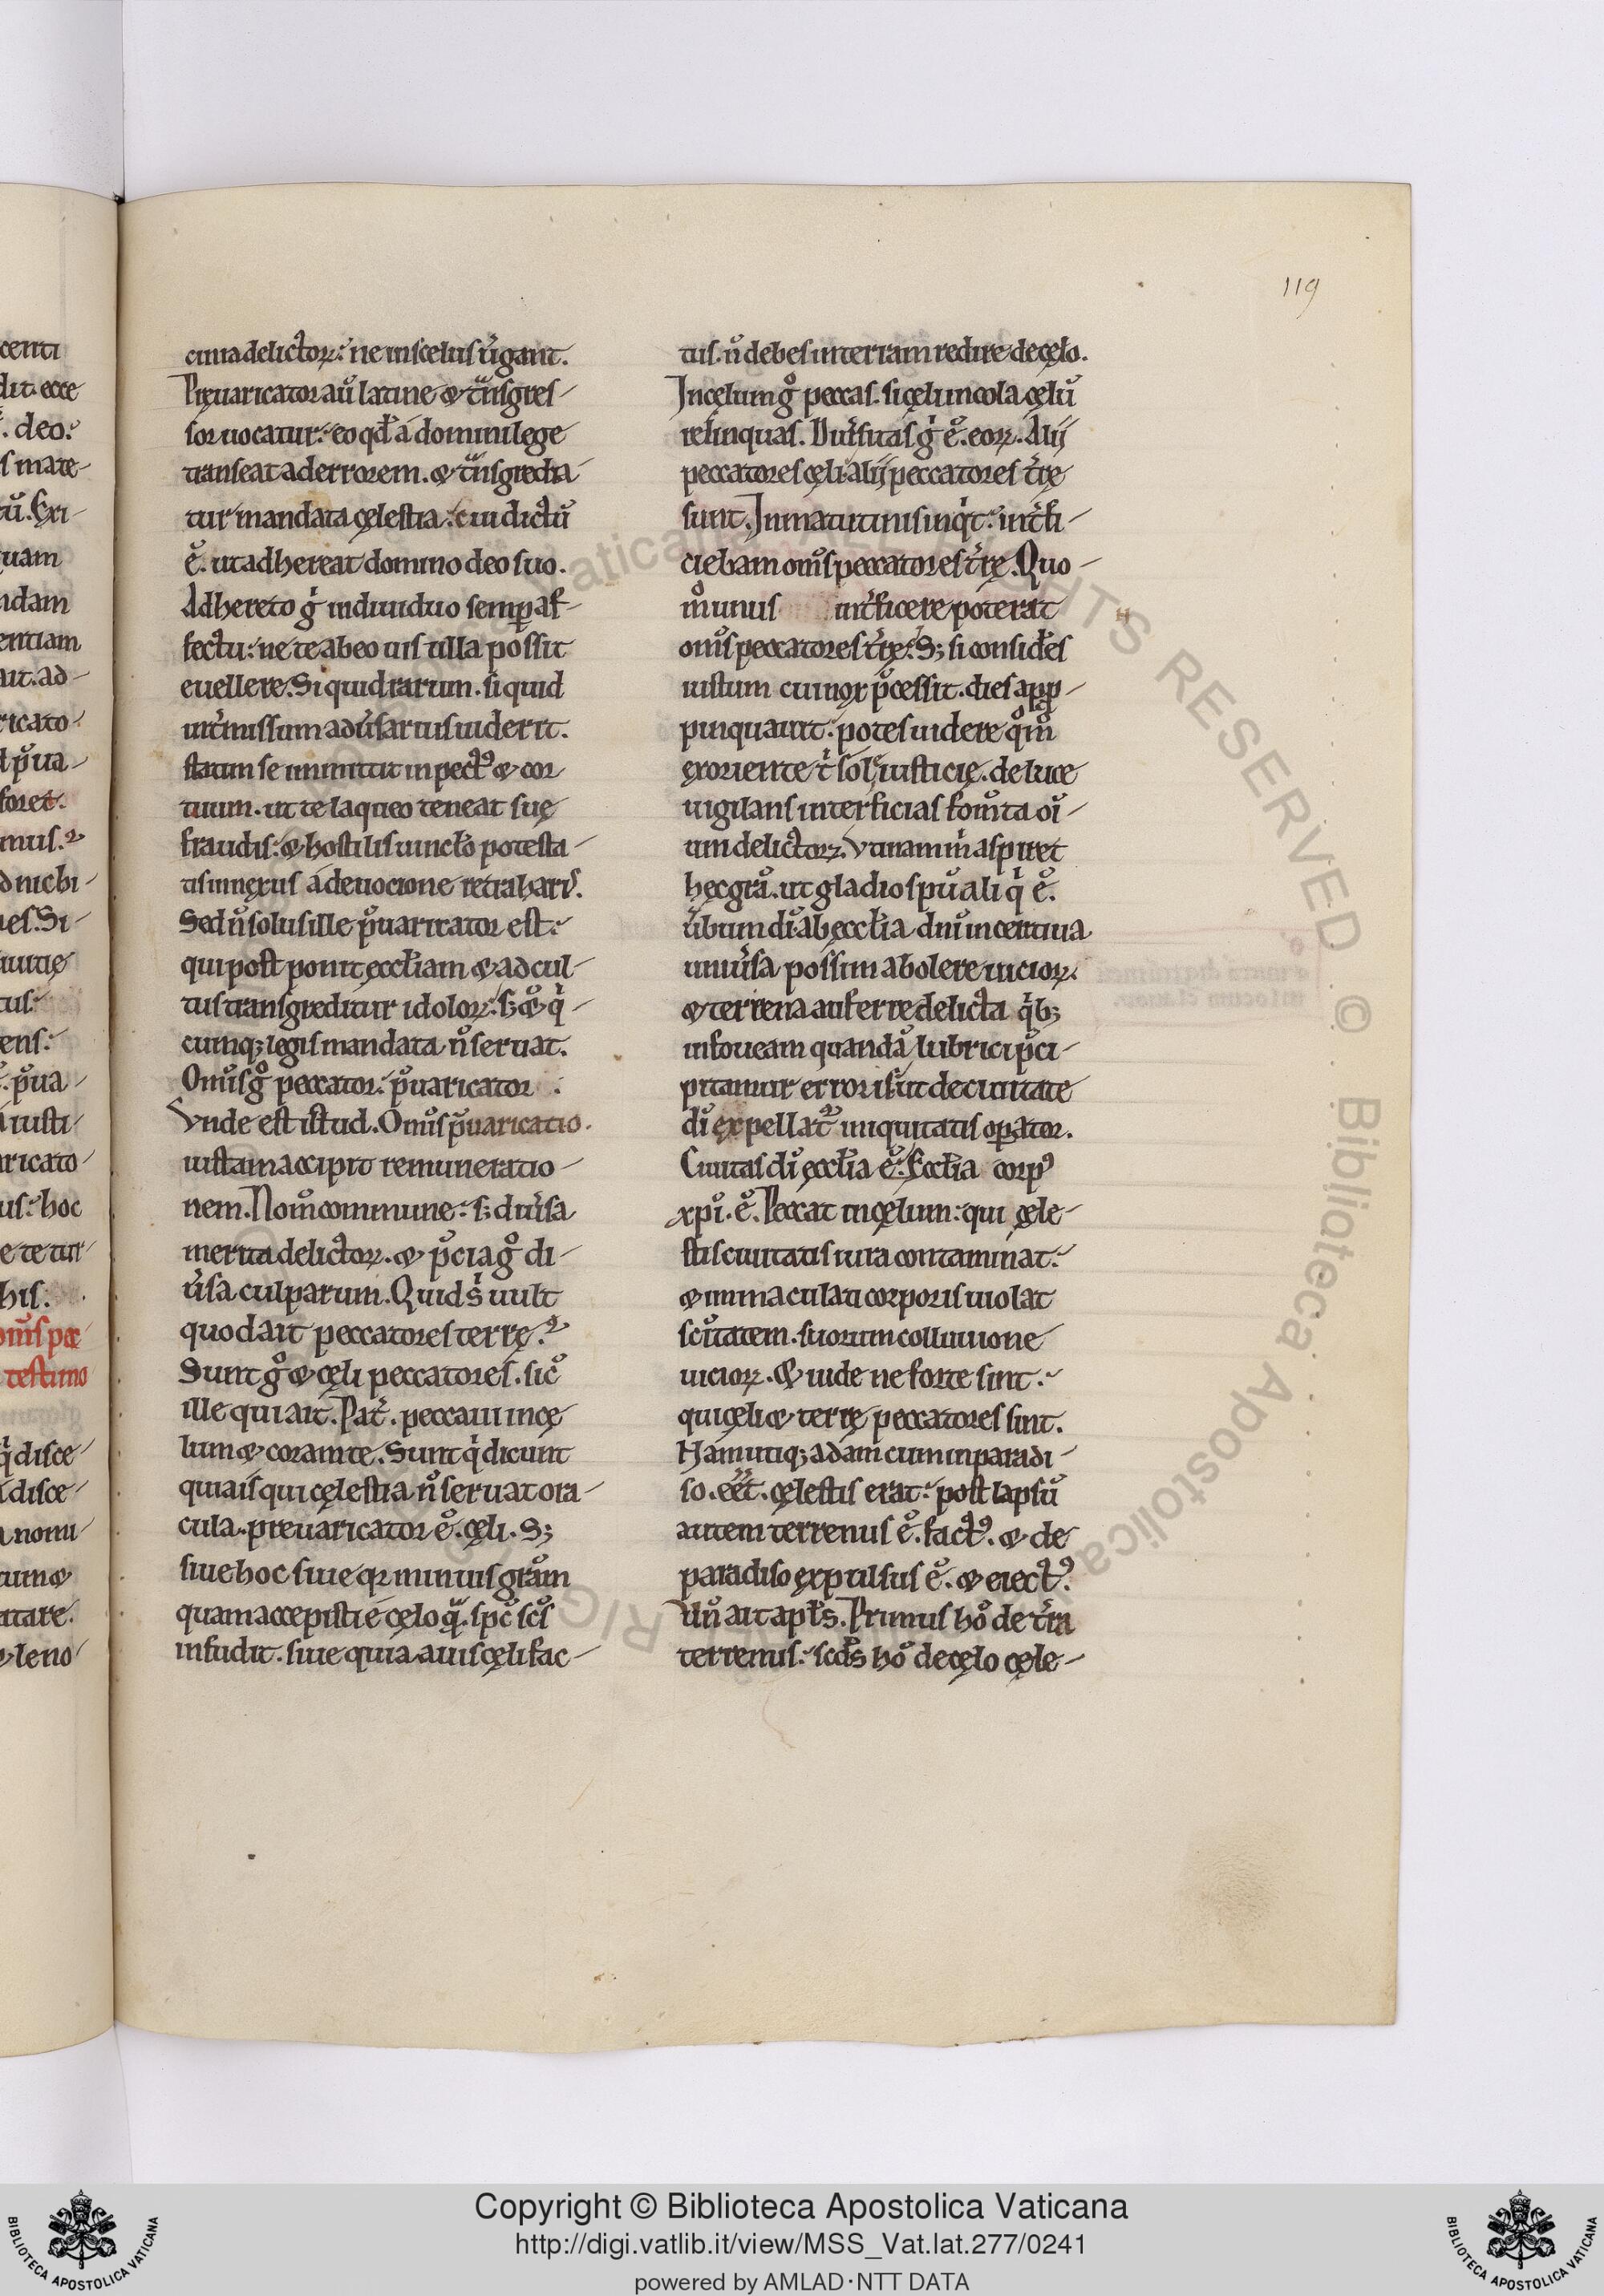 119
centi
dit. ecce
. deo.
s mate-
tū. Exi-
quam
ndam
entiam
ait. ad-
ricato-
foret.
mus.
d nichi-
es. Si-
tus.
ens.
a iusti-
aricato-
us. hoc
e te tur-
his.
om̄s pec
testimo
disce-
disce-
a nonu-
tum &
tare.
leno-
cinia delictoꝝ: ne in scelus u͛gant.
Pręuaricator aū latine & tͣnsgres-
sor uocatur: eo qđ a domini lege
transeat ad errorem. & tͣnsgredia-
tur mandata cęlestia. cui dictū
ē. ut adhereat domino deo suo.
Adhereto gͥ indiuiduo semꝑ af-
fectu: ne te ab eo uis ulla possit
euellere. Si quid rarum. si quid
int͛missum adu͛sarius uiderit.
statim se inmittit in pectꝰ & cor
tuum. ut te laqueo teneat suę
fraudis: & hostilis uinclo potesta-
tis innexus a deuocione retraharis.
Sed n̄ solus ille p̄uaricator est:
qui post ponit ęccłiam & ad cul-
tus transgreditur idoloꝝ: sꝫ & qͥ-
cumqꝫ legis mandata n̄ seruat.
Om̄s gͦ peccator: p̄uaricator .
Vnde est istud. Om̄s p̄uaricatio.
iustam accipit remuneratio-
nem. Nom̄ commune: sꝫ diu͛sa
merita delictoꝝ. & p̄cia gͦ di-
u͛sa culparum. Quid sͥ uult
quod ait peccatores terrę.
Sunt gͦ & cęli peccatores. sic̄
ille qui ait. Pat͛. peccaui in cę
lum & coram te. Sunt qͥ dicunt
quia is qui cęlestia n̄ seruat ora-
cula. preuaricator ē. cęli. Sꝫ
siue hoc siue qꝛ minuis grām
quam accepisti e cęlo qͣ. spc̄ sc̄s
infudit. siue quia auis cęli fac-
tus. n̄ debes in terram redire de cęlo.
In cęlum gͦ peccas. si cęli incola cęlū
relinquas. Diu͛sitas gͥ ē. eoꝝ. Alij
peccatores cęli. alij peccatores t͛rę
sunt. In matutinis inqͥt: int͛fi-
ciebam om̄s peccatores t͛rę. Quo-
m̊ unus int͛ficere poterat
om̄s peccatores t͛rę. Sꝫ si consid͛es
iustum cui nox p̄cessit. dies app̱-
pinquauit: potes uidere qm̄
exoriente tͥ sole iusticię. de luce
uigilans interficias fom̄ta oī-
um delictoꝝ. Vtinam mͥ aspiret
hęc grā. ut gladio spūali qͥ ē.
u͛bum dī. ab ęccłia dn̄i incentiua
uniu͛sa possim abolere uicioꝝ.
& terrena auferre delicta qͥbꝫ
in foueam quandā lubrici p̄ci-
pitamur erroris. ut de ciuitate
dī expellatᷣ iniquitatis oꝑator.
Ciuitas dī ęccłia ē. Ęccłia corpꝰ
xpī. ē. Peccat in cęlum: qui cęle-
stis ciuitatis iura contaminat:
& inmaculati corporis uiolat
sc̄itatem. suorum colluuione
uicioꝝ. & uide ne forte sint.
qui cęli & terrę peccatores sint.
Nam utiqꝫ adam cum in paradi-
so. eēt. cęlestis erat: post lapsū
autem terrenus ē. factꝰ. & de
paradiso expulsus ē. & eiectꝰ.
Vn̄ ait apłs. Primus hō de t͛ra
terrenus: scd̄s hō de cęlo cęle-
Copyright © Biblioteca Apostolica Vaticana
http://digi.vatlib.it/view/MSS_Vat.lat.277/0241
powered by AMLAD·NTT DATA
BIBLIOTECA APOSTOLICA VATICANA
BIBLIOTECA APOSTOLICA VATICANA